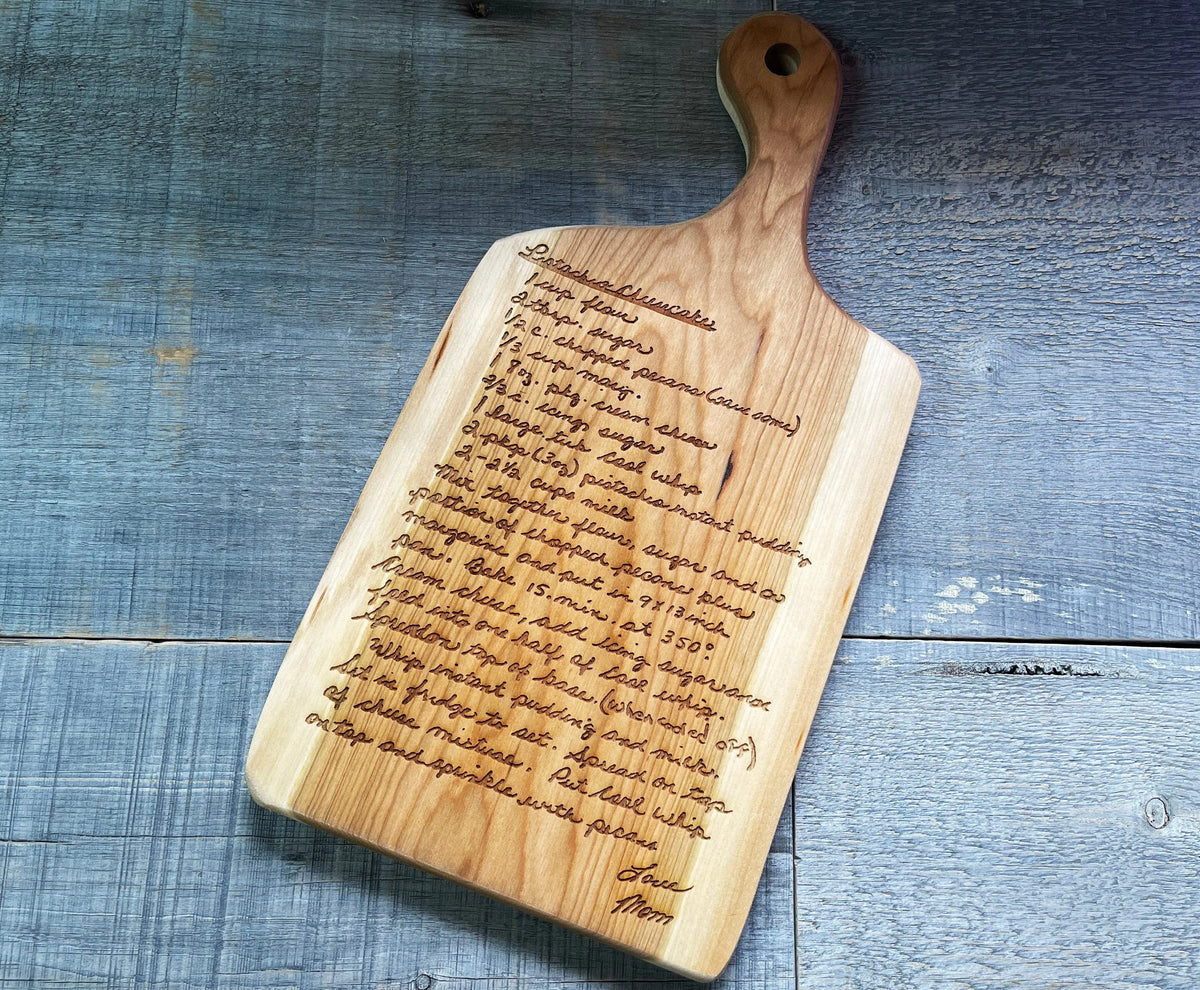 Pistachio Cheesecake
1 cup flour
2 tbsp. sugar
1/2 c. chopped pecans (save some)
1/3 cup marg.
1 8oz. pkg. cream cheese
2/3 c. icing sugar
1 large tub cool whip
2 pkgs (3oz) pistachio instant pudding
2 - 2 1/2 cups milk
Mix together flour, sugar and a
portion of chopped pecans plus
margarine and put in 9x13 inch
pan. Bake 15. min. at 350°.
Cream cheese, add icing sugar and
fold into one half of cool whip.
Spread on top of base (when cooled off)
Whip instant pudding and milk.
Set in fridge to set. Spread on top
of cheese mixture. Put cool whip
on top and sprinkle with pecans
Love
Mom